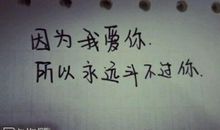 因为我爱你.
所以永远斗不过你.